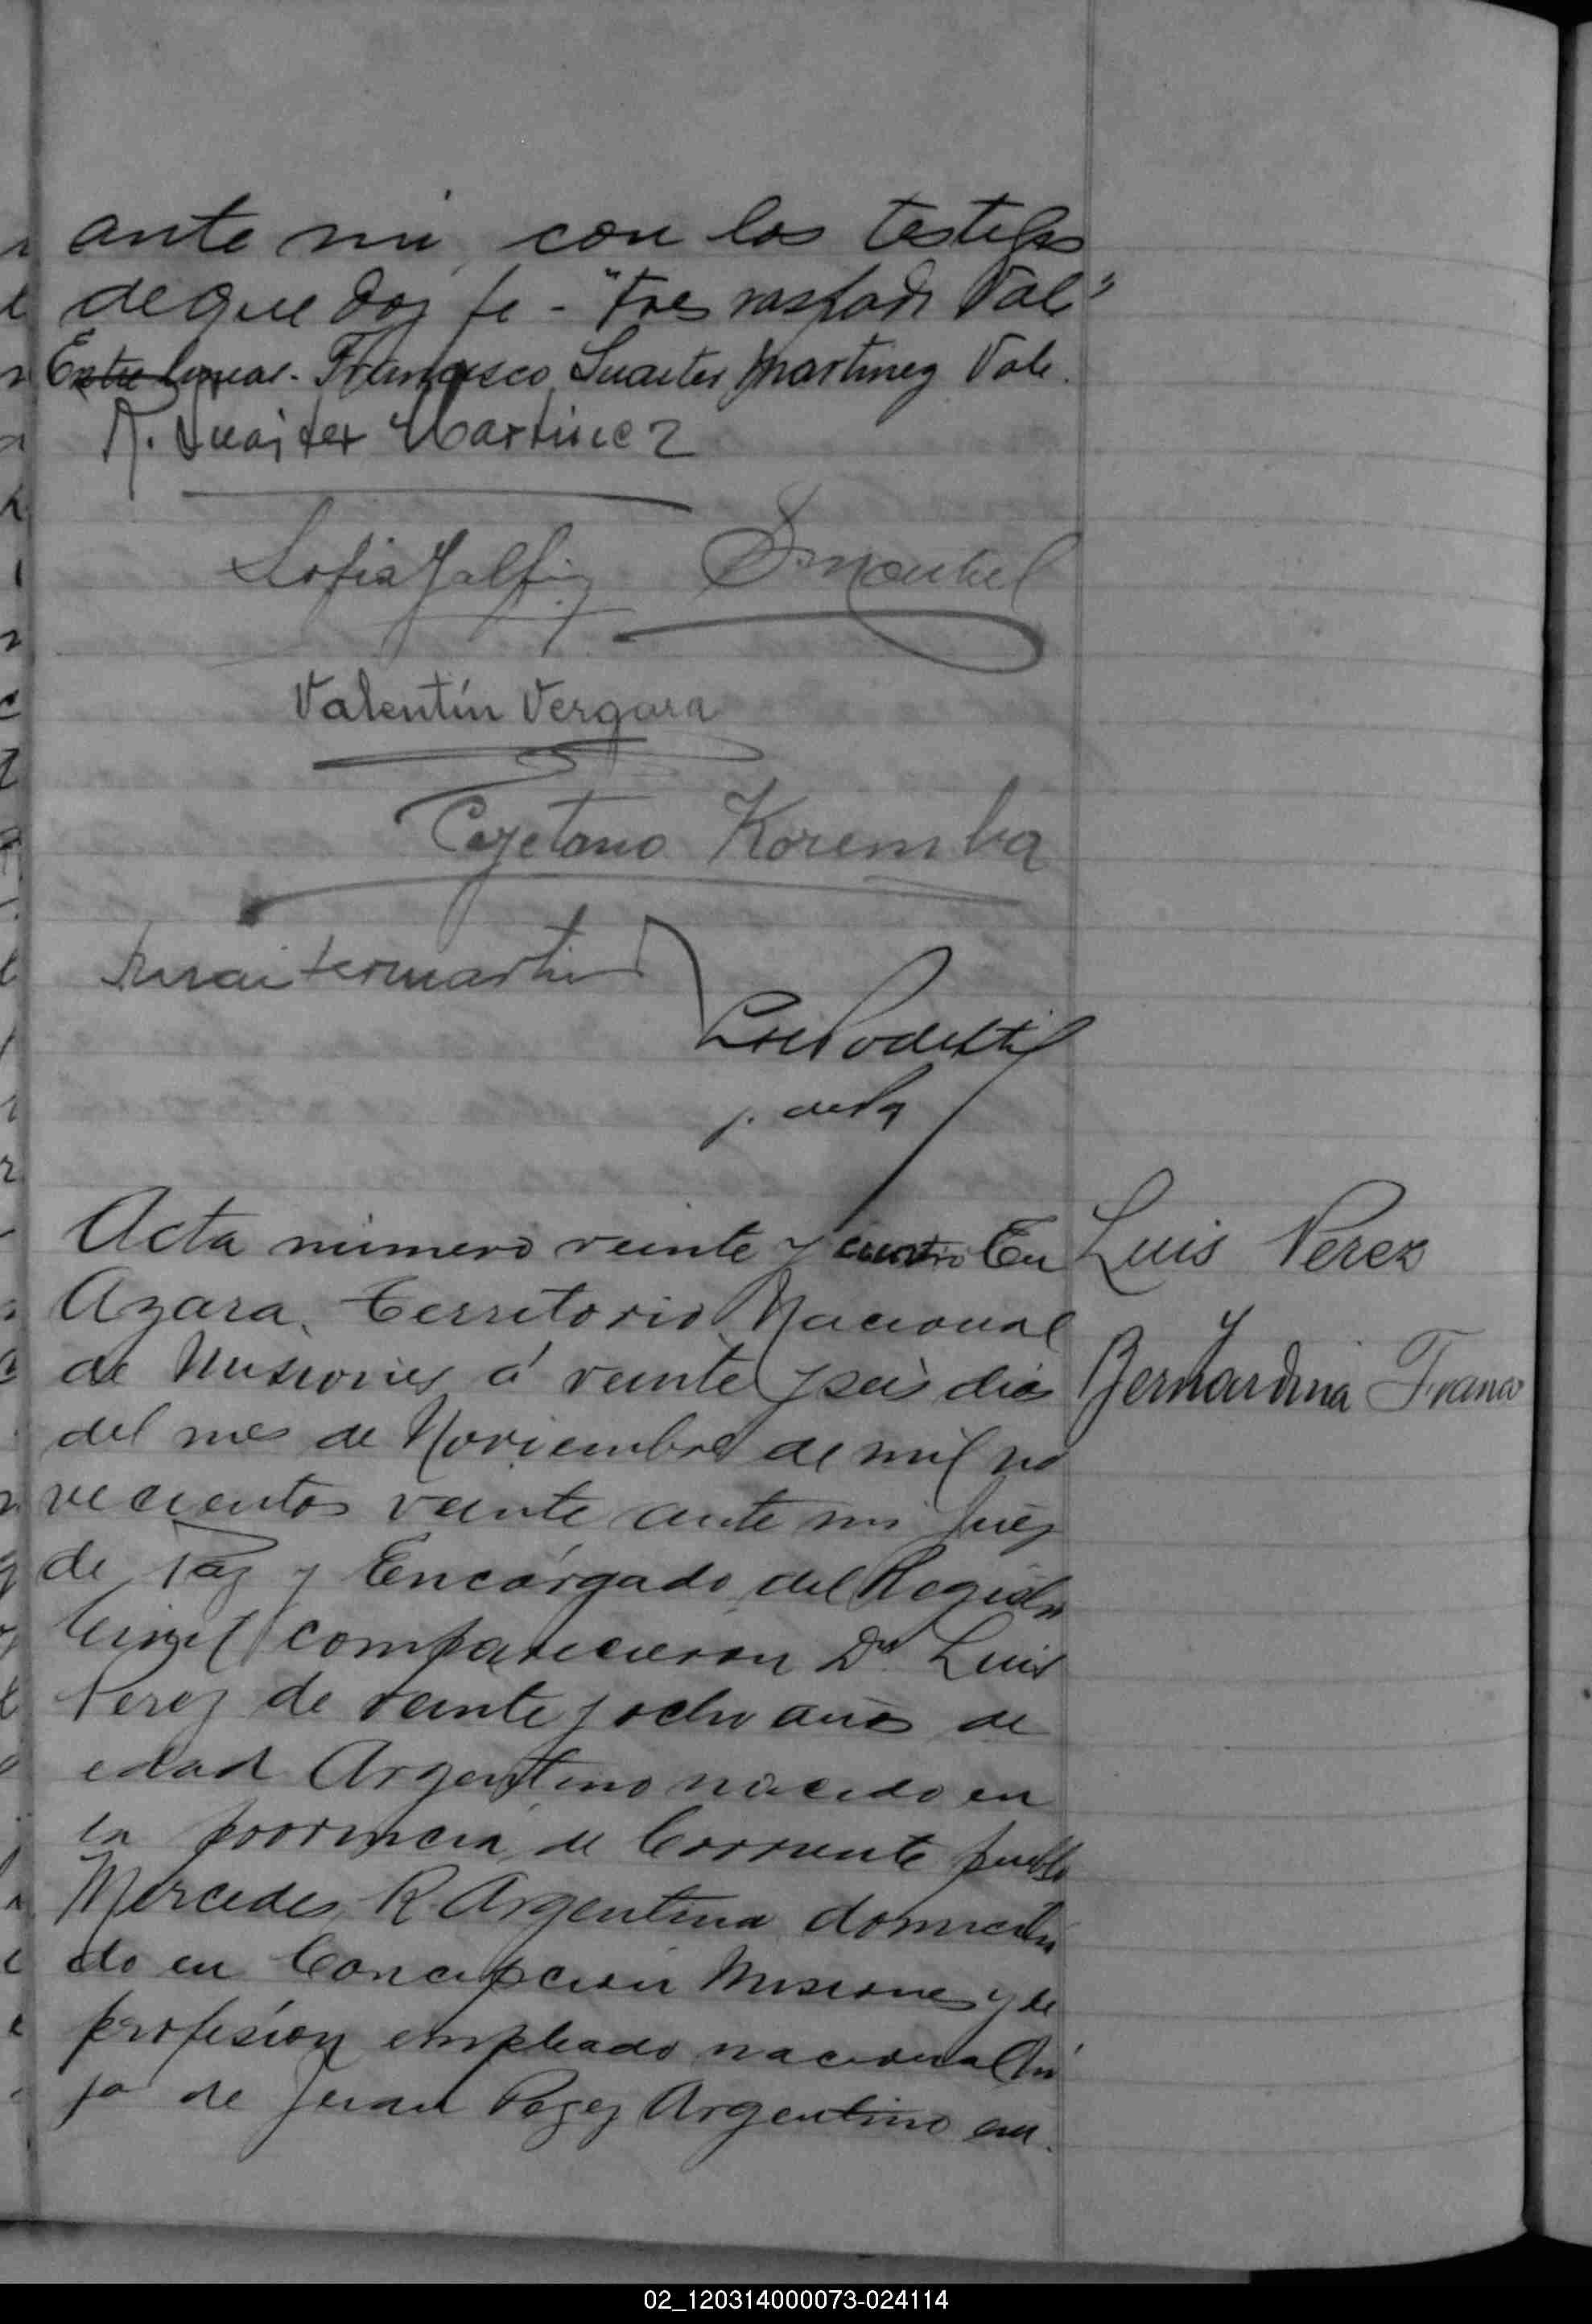 ante mi, con los testigos
de que doy fe - "tres raspado Vale"
Entre lineas - Francisco Suaiter Martinez Vale.
R. Suaiter Martinez
Sofia
Valentín Vergara
Cayetano Koremba
Suaiter Martinez
Podestá
j. de Pz
Acta número veinte y cuatro En
Luis Perez
Azara, Territorio Nacional
y
de Misiones á veinte y seis dias
Bernardina Franco
del mes de Noviembre de mil no
vecientos veinte ante mi Juez
de Paz y Encargado del Registro
Civil comparecieron Dn. Luis
Perez de veinte y ocho años de
edad Argentino nacido en
la provincia de Corriente pueblo
Mercedes R. Argentina domicilia
do en Concepción Misiones y de
profesión empleado nacional hi
jo de Juan Perez Argentino